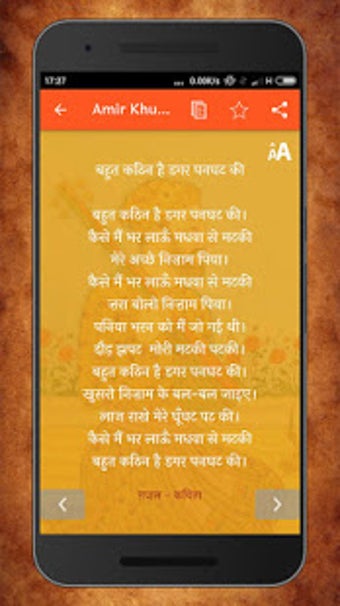 17:27
... 0.00K/s H
Amir Khu...
ÂA
बहुत कठिन है डगर पनघट की
बहुत कठिन है डगर पनघट की।
कैसे मैं भर लाऊँ मधवा से मटकी
मेरे अच्छे निज़ाम पिया।
कैसे मैं भर लाऊँ मधवा से मटकी
ज़रा बोलो निज़ाम पिया।
पनिया भरन को मैं जो गई थी।
दौड़ झपट मोरी मटकी पटकी।
बहुत कठिन है डगर पनघट की।
खुसरो निज़ाम के बल-बल जाइए।
लाज राखे मेरे घूँघट पट की।
कैसे मैं भर लाऊँ मधवा से मटकी
बहुत कठिन है डगर पनघट की।
ग़ज़ल - कविता